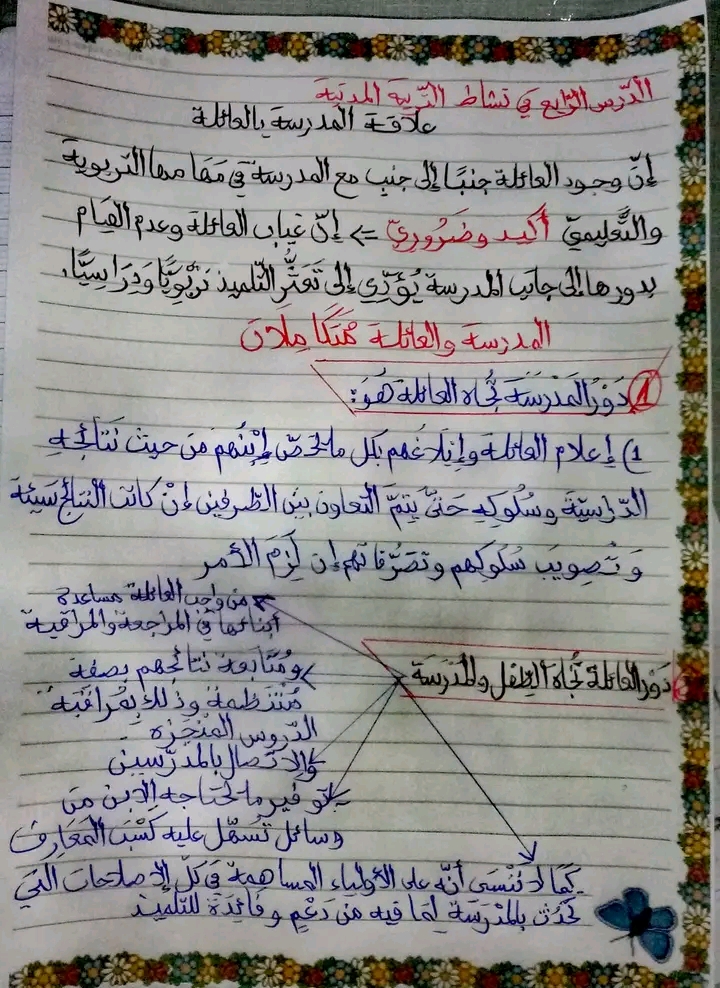 الدّرس الرّابع في نشاط التّربية المدنيّة
علاقة المدرسة بالعائلة
إنّ وجود العائلة جنبًا إلى جنب مع المدرسة في مهامها التربوية
والتَّعليميّ أكيد وضَروريّ => إنّ غياب العائلة وعدم القيام
بدورها إلى جانب المدرسة يُؤدِّي إلى تَعَثُّرِ التّلميذ تربْويًّا ودِرَاسيًّا.
المدرسة والعائلة مُتَكَامِلان
1 دَوْرُ المَدْرَسَة تُجاه العائلة هُوَ:
1) إعلام العائلة وإبْلاغُهم بكل ما يخصّ إبْنُهم من حيث نتائجِهِ
الدّراسيّة وسُلوكِهِ حَتّىَ يَتِمَّ التّعاون بين الطّرفين إنْ كانت النتائج سيئة
وَتصويب سُلوكِهم وتصَرُّفاتهم إن لَزِمَ الأمر
من واجب العائلة مساعدة
أبنائها في المراجعة والمراقبة
دَوْر العائلة تُجاه الطِفل والمَدْرَسَة
ومُتَابعة نتائجهم بصفة
مُنتظمة وذلك بمُراقبة
الدّروس المُنْجزة
والاتّصال بالمدرّسين
توفير ما يحتاجه الإبن من
وسائل تُسهّل عليه كسْبَ المَعَارف
كمَا لا ننْسَى أنّه على الأولياء المساهمة في كلّ الإصلاحات التي
تحْدُث بالمَدْرَسَة لِمَا فيه من دَعْمٍ وفَائِدَة للتّلميذ